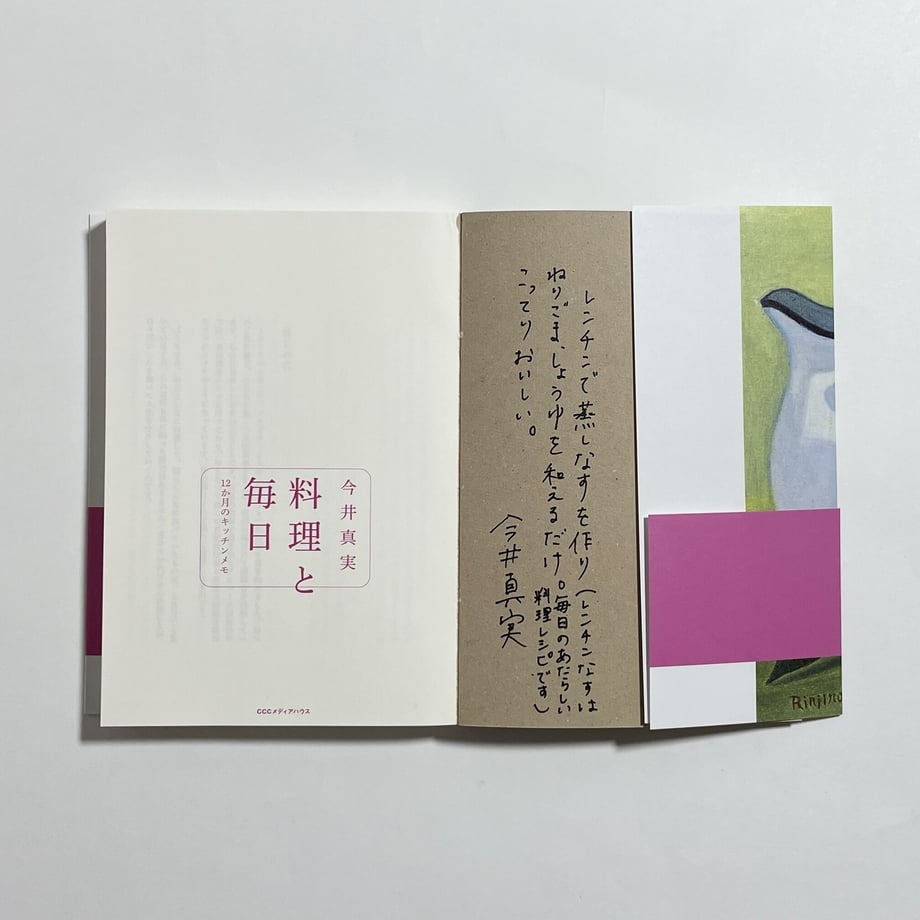 レンチンで蒸しなすを作り（レンチンなすは
毎日のあたらしい
料理レシピです）
ねりごま、しょうゆを和えるだけ。
こってりおいしい。
今井真実
今井真実
料理と
毎日
12か月のキッチンメモ
CCCメディアハウス
Rinjiro